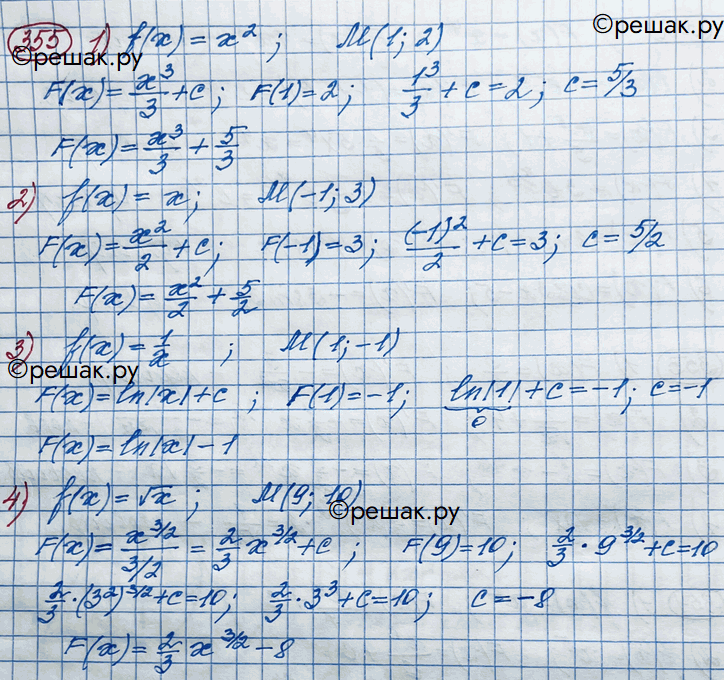 ©решак.ру
355 1) f(x) = x² ; M(1; 2)
©решак.ру
F(x) = x³/3 + c ; F(1) = 2 ; 1³/3 + c = 2 ; c = 5/3
F(x) = x³/3 + 5/3
2) f(x) = x ; M(-1; 3)
F(x) = x²/2 + c ; F(-1) = 3 ; (-1)²/2 + c = 3 ; c = 5/2
©решак.ру
F(x) = x²/2 + 5/2
3) f(x) = 1/x ; M(1; -1)
©решак.ру
F(x) = ln|x| + c ; F(1) = -1 ; ln|1| + c = -1 ; c = -1
0
F(x) = ln|x| - 1
4) f(x) = √x ; M(9; 10)
©решак.ру
F(x) = x^3/2 / 3/2 = 2/3 x^3/2 + c ; F(9) = 10 ; 2/3 · 9^3/2 + c = 10
2/3 · (3²)^3/2 + c = 10 ; 2/3 · 3³ + c = 10 ; c = -8
F(x) = 2/3 x^3/2 - 8